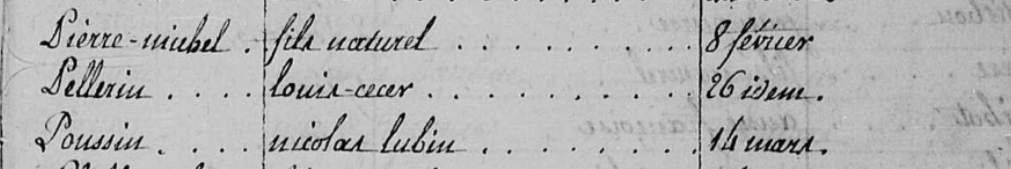 Pierre-michel . fils naturel . . . . . . . . . . 8 février
Pellerin . . . . louis-cecer . . . . . . . . . . 26 idem.
Poussin . . . . nicolas lubin . . . . . . . . 14 mars.